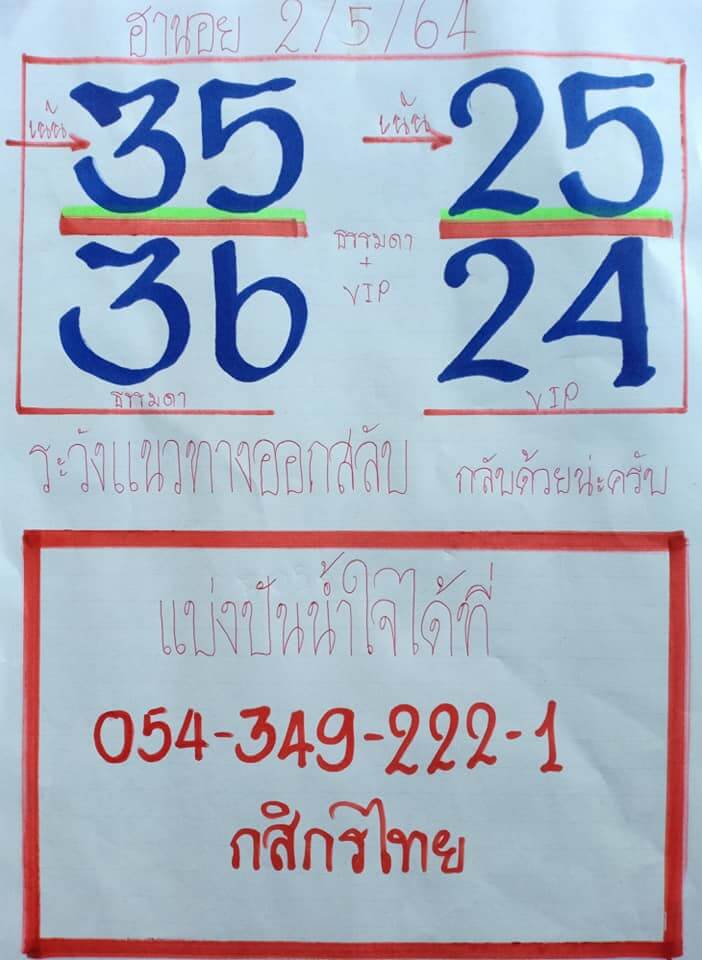 ฮานอย 2/5/64
เน้น 35 เน้น 25
ธรรมดา
+
VIP
36 24
ธรรมดา VIP
ระวังแนวทางออกสลับ กลับด้วยน่ะครับ
แบ่งปันน้ำใจได้ที่
054-349-222-1
กสิกรไทย